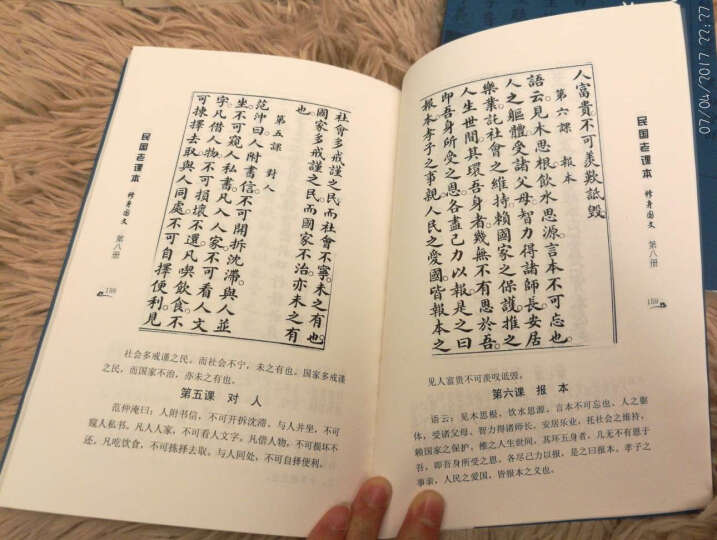 民国老课本
修身国文
第八册
社會多戒謹之民而社會不寧。未之有也。
國家多戒謹之民而國家不治。亦未之有
也
第五課 對人
范沖曰人附書信不可開拆沈滯。與人並
坐不可窺人私書。凡入人家不可看人文
字。凡借人物不可損壞不還。凡喫飲食不
可揀擇去取與人同處不可自擇便利。見
社会多戒谨之民，而社会不宁，未之有也。国家多戒谨
之民，而国家不治，亦未之有也。
第五课 对 人
范仲淹曰：人附书信，不可开拆沈滞。与人并坐，不可
窥人私书。凡入人家，不可看人文字。凡借人物，不可损坏不
还。凡吃饮食，不可拣择去取。与人同处，不可自择便利。
民国老课本
修身国文
第八册
人富貴不可羨歎詆毀
第六課 報本
語云見木思根飲水思源。言本不可忘也。
人之軀體受諸父母智力得諸師長安居
樂業託社會之維持賴國家之保護推之
人生世間其環吾身者幾無不有恩於吾。
即吾身所受之恩各盡己力以報是之曰
報本孝子之事親人民之愛國皆報本之
见人富贵不可羡叹诋毁。
第六课 报 本
语云：见木思根，饮水思源。言本不可忘也。人之躯
体，受诸父母，智力得诸师长，安居乐业，托社会之维持，
赖国家之保护，推之人生世间，其环吾身者，几无不有恩于
吾，即吾身所受之恩，各尽己力以报，是之曰报本。孝子之
事亲，人民之爱国，皆报本之义也。
07/04/2017 22:27